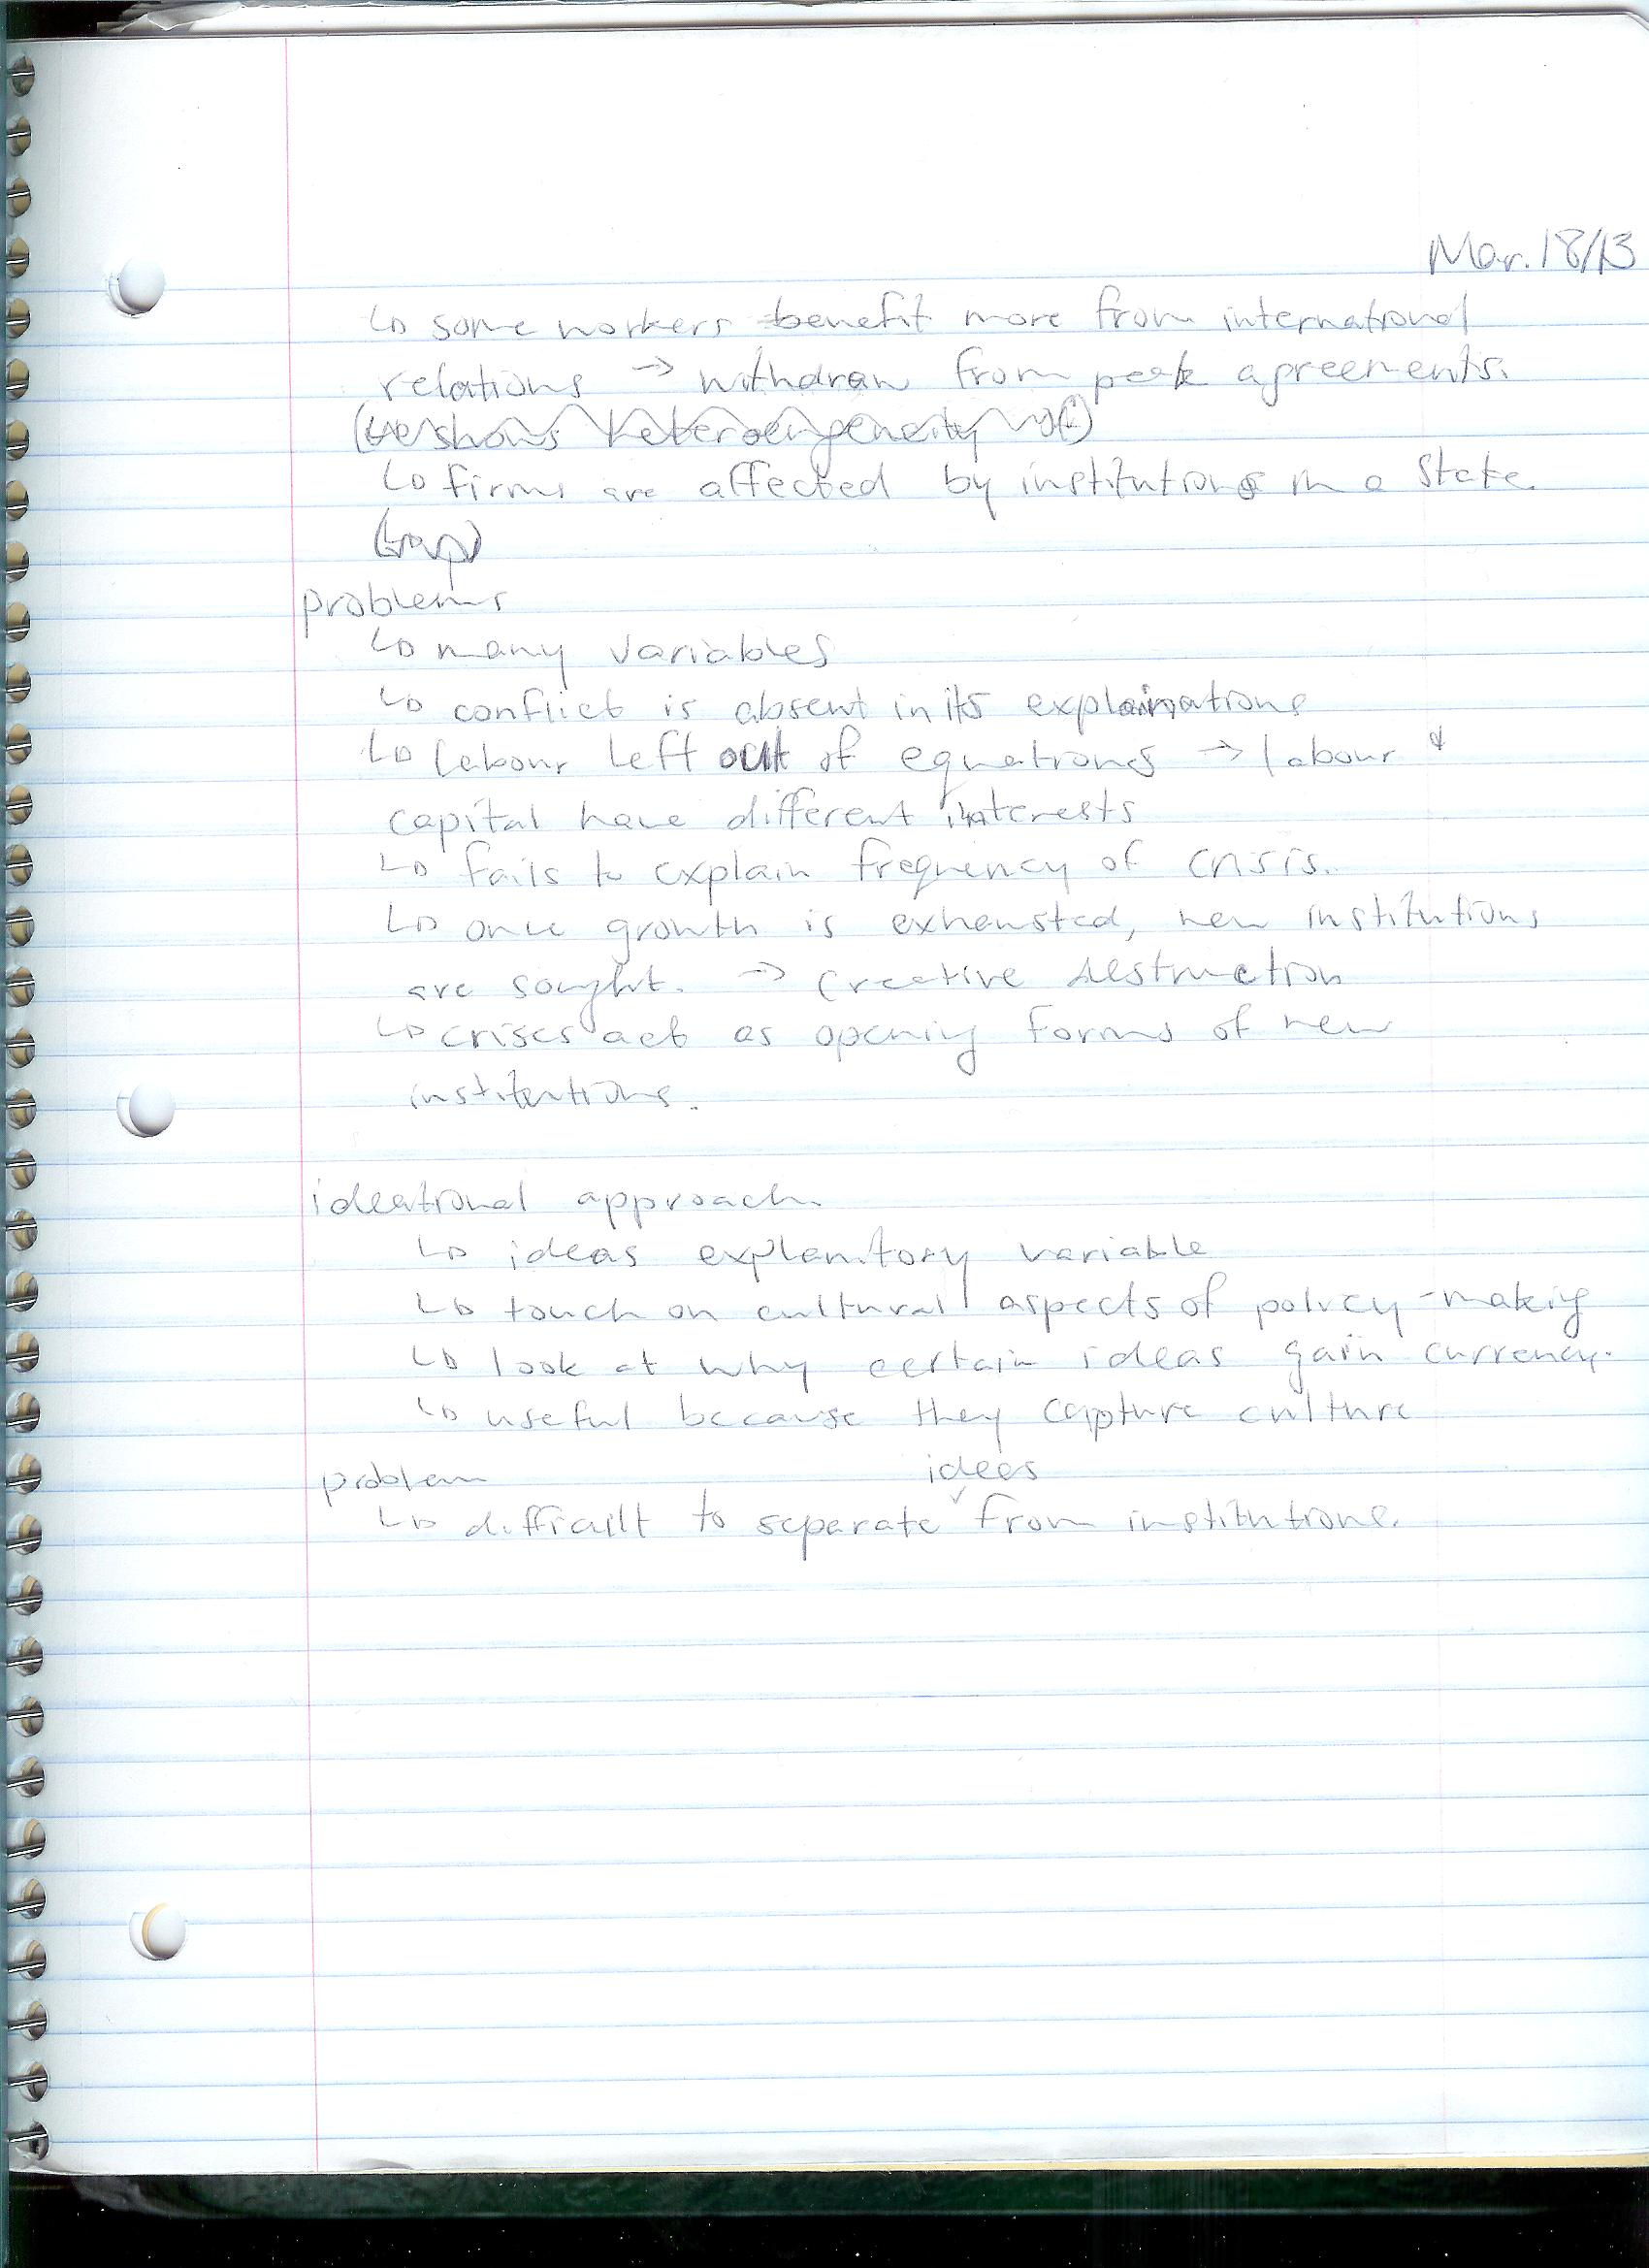 Mar. 18/13
↳ some workers benefit more from international
relations → withdraw from peak agreements.
shows
↳ firms are affected by institutions in a State.
problems
↳ many variables
↳ conflict is absent in its explainations
↳ labour left out of equations → labour &
capital have different interests
↳ fails to explain frequency of crisis.
↳ once growth is exhausted, new institutions
are sought. → creative destruction
↳ crises act as opening forms of new
institutions.
ideational approach.
↳ ideas explanitory variable
↳ touch on cultural aspects of policy-making
↳ look at why certain ideas gain currency.
↳ useful because they capture culture
problem
↳ difficult to separate ideas from institutions.